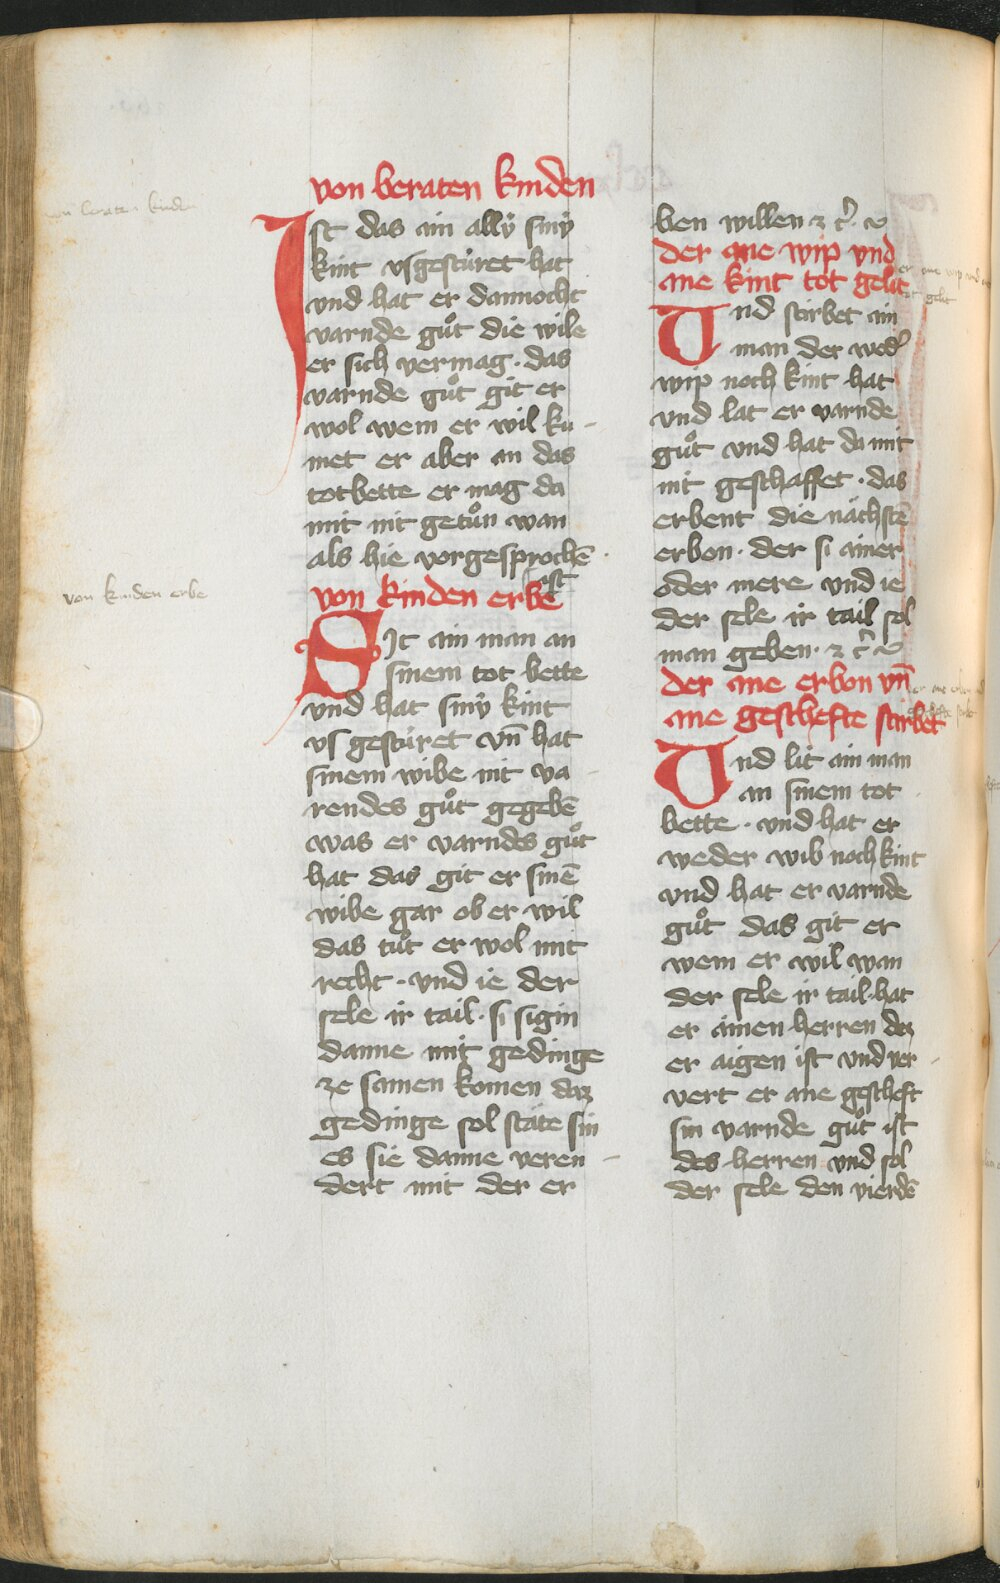 von beraten kinden
Ist das ain allÿ sinÿ
kint vsgestúret hat
vnd hat er dannocht
varnde guͦt die wile
er sich vermag · das
varnde guͦt git er
wol wem er wil ku-
met er aber an das
totbette er mag da
mit nit getuͦn wan
als hie vorgesprochē
ist
von kinden erbe
SIt ain man an
sinem tot bette
vnd hat sinÿ kint
vs gestúret vn̄ hat
sinem wibe nit va-
rendes guͦt gegebē
was er varndes guͦt
hat das git er sinē
wibe gar ob er wil
das tuͦt er wol mit
recht · vnd ie der
sele ir tail · si sigin
danne mit gedinge
ze samen komen daz
gedinge sol stäte sin
es sie danne veren-
dert mit der er
ben willen ⁊ c̄
der ane wip vnd
ane kint tot gelit
Und stirbet ain
man der wedˀ
wip noch kint hat
vnd lat er varnde
guͦt vnd hat da mit
nit geschaffet · das
erbent die nächstē
erbon · der si ainer
oder mere vnd ie
der sele ir tail sol
man geben · ⁊ c̄
der ane erbon vn̄
ane geschefte stirbet
Und lit ain man
an sinem tot
bette · vnd hat er
weder wib noch kint
vnd hat er varnde
guͦt das git er
wem er wil wan
der sele ir tail · hat
er ainen herren des
er aigen ist vnd ver-
vert er ane gescheft
sin varnde guͦt ist
des herren vnd sol
der sele den vierdē
von beraten kinden
von kinden erbe